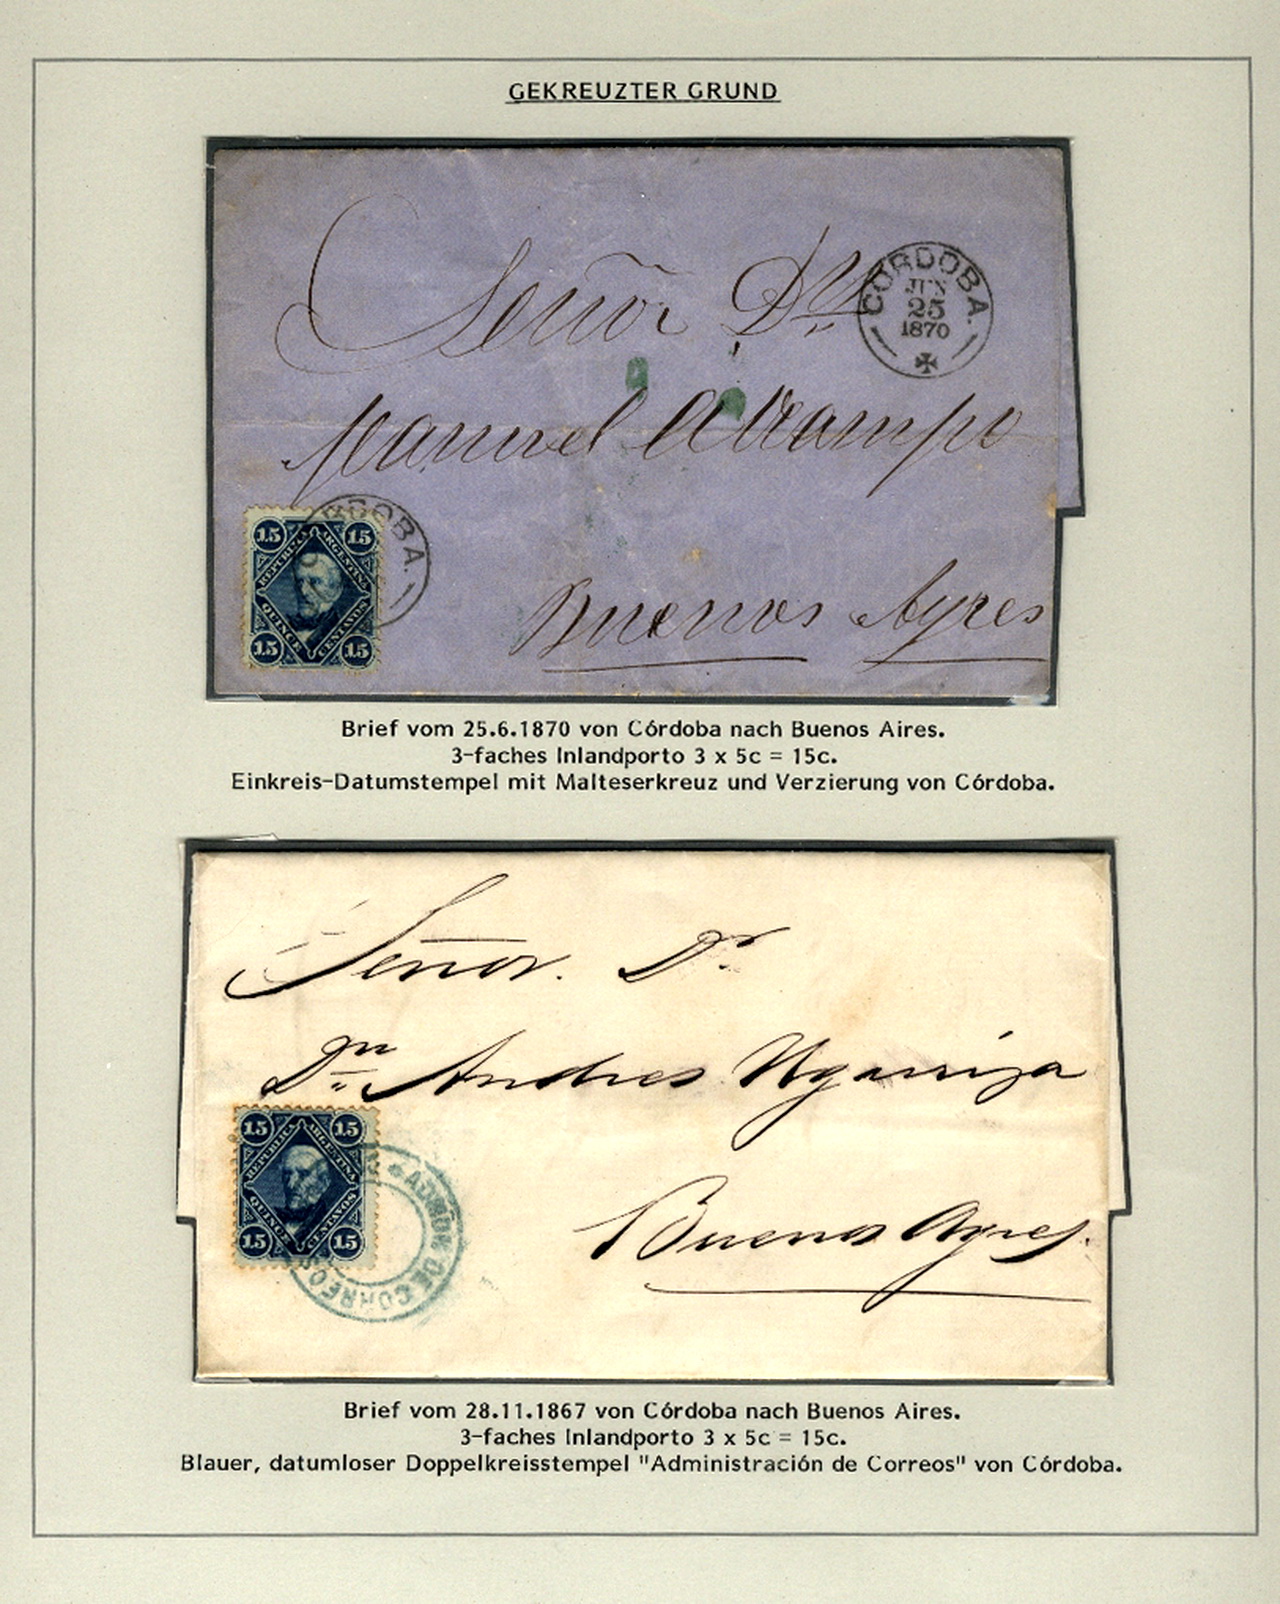 GEKREUZTER GRUND
Señor Dn
CORDOBA.
JUN
25
1870
Manuel Ocampo
RDOBA.
15 15
REPUBLICA ARGENTINA
QUINCE CENTAVOS
15 15
Buenos Ayres
Brief vom 25.6.1870 von Córdoba nach Buenos Aires.
3-faches Inlandporto 3 x 5c = 15c.
Einkreis-Datumstempel mit Malteserkreuz und Verzierung von Córdoba.
Señor. Dr
Dn Andres Ugarriza
15 15
REPUBLICA ARGENTINA
QUINCE CENTAVOS
15 15
ADMON DE CORREOS
Buenos Ayres.
Brief vom 28.11.1867 von Córdoba nach Buenos Aires.
3-faches Inlandporto 3 x 5c = 15c.
Blauer, datumloser Doppelkreisstempel "Administración de Correos" von Córdoba.